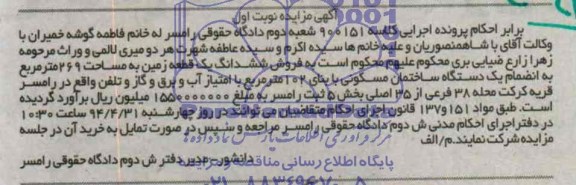 آگهی مزایده نوبت اول
برابر احکام پرونده اجرایی کلاسه ۹۰۰۱۵۱ شعبه دوم دادگاه حقوقی رامسر له خانم فاطمه گوشه خمیران با
وکالت آقای با شاهمنصوریان و علیه خانم ها سیده اکرم و سیده عاطفه شهرت هر دو میری لالمی و وراث مرحومه
زهرا زارع ضیایی بری محکوم علیهم محکوم است به فروش ششدانگ یک قطعه زمین به مساحت ۲۶۹ مترمربع
به انضمام یک دستگاه ساختمان مسکونی با بنای ۱۰۲ مترمربع با امتیاز آب و برق و گاز و تلفن واقع در رامسر
قریه کرکت محله ۳۸ فرعی از ۳۵ اصلی بخش ۵ ثبت رامسر به مبلغ ۱۵۵۰۰۰۰۰۰۰ میلیون ریال برآورد گردیده
است. طبق مواد ۱۵۱ و ۱۳۷ قانون اجرای احکام متقاضیان می توانند در روز چهارشنبه ۹۴/۴/۳۱ ساعت ۱۰:۳۰
در دفتر اجرای احکام مدنی ش دوم دادگاه حقوقی رامسر مراجعه و سپس در صورت تمایل به خرید آن در جلسه
مزایده شرکت نمایند. م/الف
دانشور - مدیر دفتر ش دوم دادگاه حقوقی رامسر
پایگاه اطلاع رسانی مناقصه و مزایده